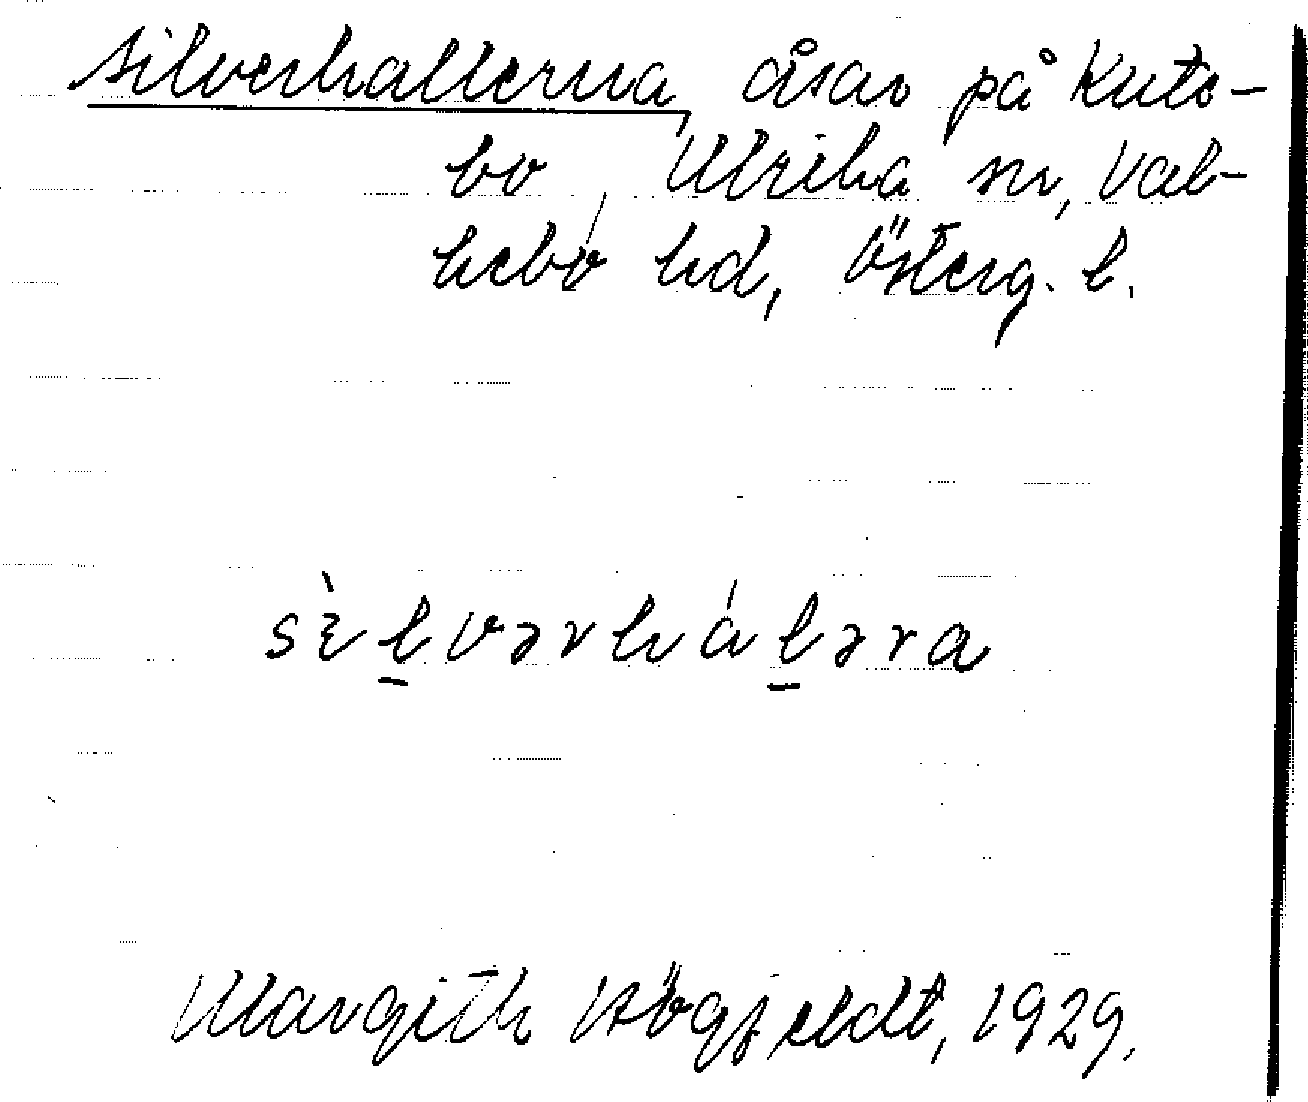 Silverhallerna, åsar på Kuts-
bo, Ulrika sn, Val-
kebo hd, Österg. l.
sɛ̀l̠vərhál̠əra
Margith Högfeldt, 1929.